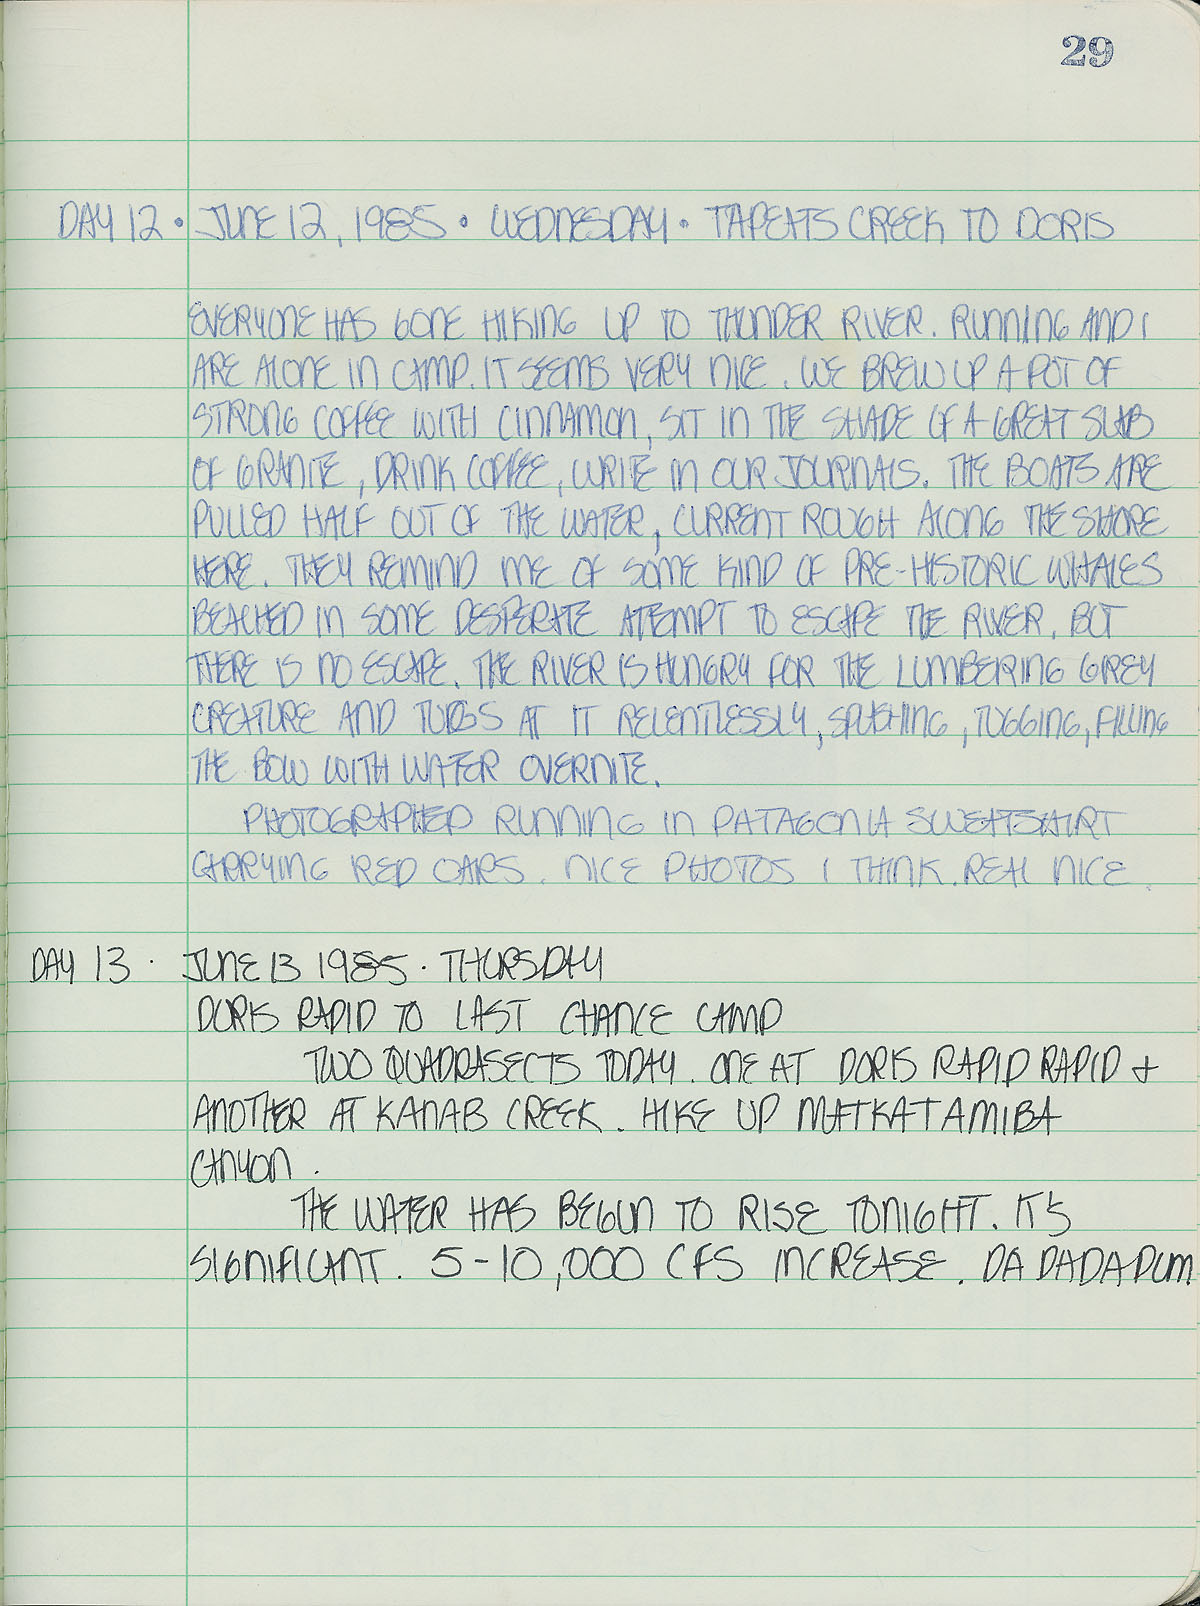 29
DAY 12 • JUNE 12, 1985 • WEDNESDAY • TAPEATS CREEK TO DORIS
EVERYONE HAS GONE HIKING UP TO THUNDER RIVER. RUNNING AND I
ARE ALONE IN CAMP. IT SEEMS VERY NICE. WE BREW UP A POT OF
STRONG COFFEE WITH CINNAMON, SIT IN THE SHADE OF A GREAT SLAB
OF GRANITE, DRINK COFFEE, WRITE IN OUR JOURNALS. THE BOATS ARE
PULLED HALF OUT OF THE WATER, CURRENT ROUGH ALONG THE SHORE
HERE. THEY REMIND ME OF SOME KIND OF PRE-HISTORIC WHALES
BEACHED IN SOME DESPERATE ATTEMPT TO ESCAPE THE RIVER. BUT
THERE IS NO ESCAPE. THE RIVER IS HUNGRY FOR THE LUMBERING GREY
CREATURE AND TUGGS AT IT RELENTLESSLY, SPLASHING, TUGGING, FILLING
THE BOW WITH WATER OVERNITE.
PHOTOGRAPHED RUNNING IN PATAGONIA SWEATSHIRT
CARRYING RED OARS. NICE PHOTOS I THINK. REAL NICE.
DAY 13 • JUNE 13 1985 • THURSDAY
DORIS RAPID TO LAST CHANCE CAMP
TWO QUADRASECTS TODAY. ONE AT DORIS RAPID RAPID +
ANOTHER AT KANAB CREEK. HIKE UP MATKATAMIBA
CANYON.
THE WATER HAS BEGUN TO RISE TONIGHT. IT'S
SIGNIFICANT. 5-10,000 CFS INCREASE. DA DADADUM